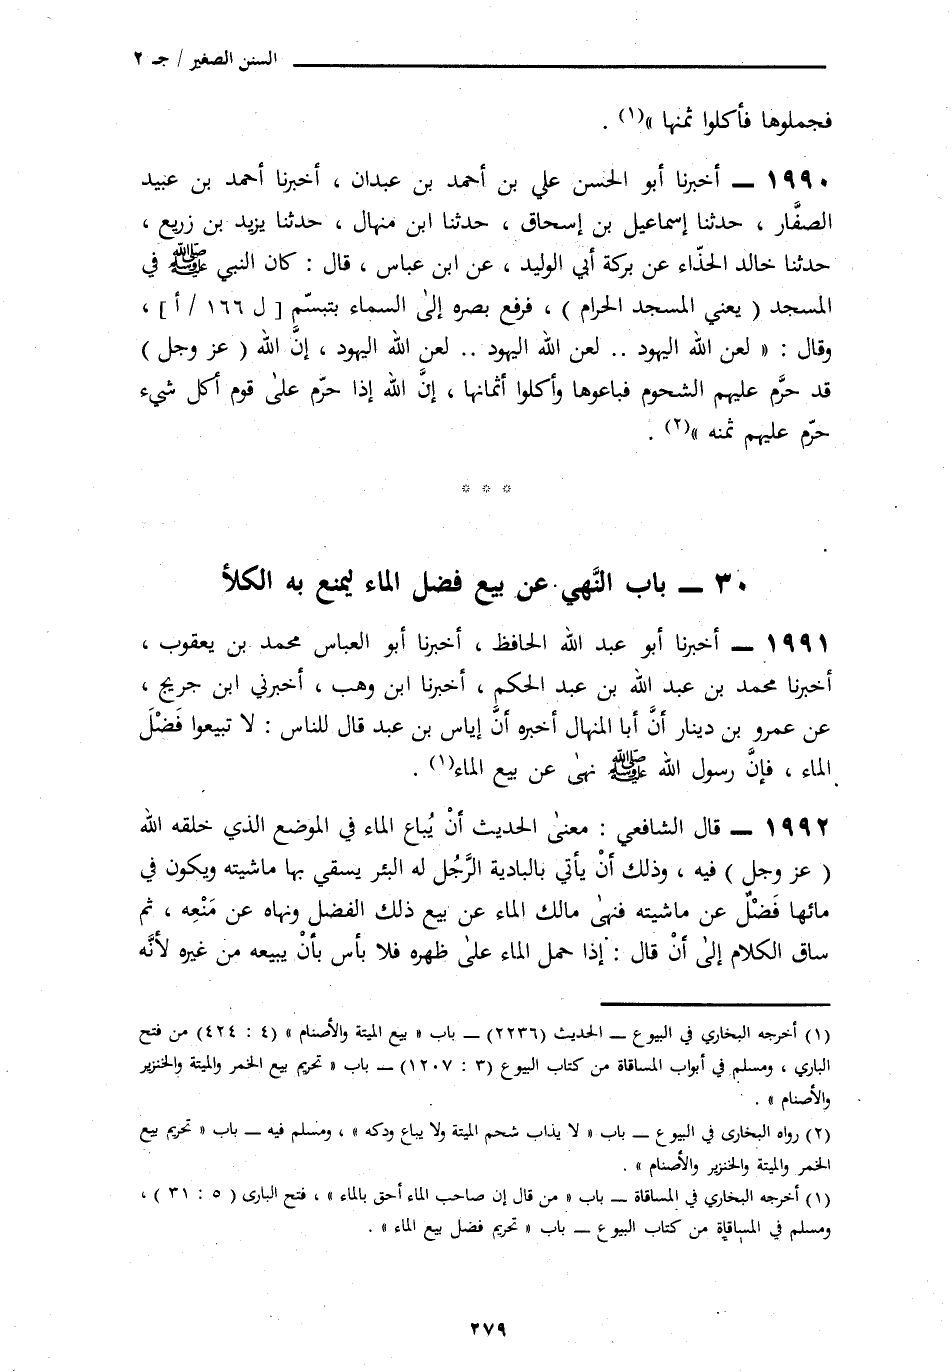 السنن الصغير / جـ ٢
فجملوها فأكلوا ثمنها »(١) .
١٩٩٠ ــ أخبرنا أبو الحسن علي بن أحمد بن عبدان ، أخبرنا أحمد بن عبيد
الصفَّار ، حدثنا إسماعيل بن إسحاق ، حدثنا ابن منهال ، حدثنا يزيد بن زريع ،
حدثنا خالد الحذّاء عن بركة أبي الوليد ، عن ابن عباس ، قال : كان النبي ﷺ في
المسجد ( يعني المسجد الحرام ) ، فرفع بصره إلىٰ السماء بتبسّم [ ل ١٦٦ / أ ] ،
وقال : « لعن الله اليهود .. لعن الله اليهود .. لعن الله اليهود ، إنَّ الله ( عز وجل )
قد حرَّم عليهم الشحوم فباعوها وأكلوا أثمانها ، إنَّ الله إذا حرّم علىٰ قوم أكل شيء
حرّم عليهم ثمنه »(٢) .
* * *
٣٠ ــ باب النَّهي عن بيع فضل الماء ليمنع به الكلأ
١٩٩١ ــ أخبرنا أبو عبد الله الحافظ ، أخبرنا أبو العباس محمد بن يعقوب ،
أخبرنا محمد بن عبد الله بن عبد الحكم ، أخبرنا ابن وهب ، أخبرني ابن جريج ،
عن عمرو بن دينار أنَّ أبا المنهال أخبره أنَّ إياس بن عبد قال للناس : لا تبيعوا فَضْلَ
الماء ، فإنَّ رسول الله ﷺ نهىٰ عن بيع الماء(١) .
١٩٩٢ ــ قال الشافعي : معنىٰ الحديث أنْ يُباع الماء في الموضع الذي خلقه الله
( عز وجل ) فيه ، وذلك أنْ يأتي بالبادية الرَّجُل له البئر يسقي بها ماشيته ويكون في
مائها فَضْلٌ عن ماشيته فنهىٰ مالك الماء عن بيع ذلك الفضل ونهاه عن مَنْعِه ، ثم
ساق الكلام إلىٰ أنْ قال : إذا حمل الماء علىٰ ظهره فلا بأس بأنْ يبيعه من غيره لأنَّه
(١) أخرجه البخاري في البيوع ــ الحديث (٢٢٣٦) ــ باب « بيع الميتة والأصنام » (٤ : ٤٢٤) من فتح
الباري ، ومسلم في أبواب المساقاة من كتاب البيوع (٣ : ١٢٠٧) ــ باب « تحريم بيع الخمر والميتة والخنزير
والأصنام » .
(٢) رواه البخارى في البيوع ــ باب « لا يذاب شحم الميتة ولا يباع ودكه » ، ومسلم فيه ــ باب « تحريم بيع
الخمر والميتة والخنزير والأصنام » .
(١) أخرجه البخاري في المساقاة ــ باب « من قال إن صاحب الماء أحق بالماء » ، فتح البارى ( ٥ : ٣١ ) ،
ومسلم في المساقاة من كتاب البيوع ــ باب « تحريم فضل بيع الماء » .
٢٧٩